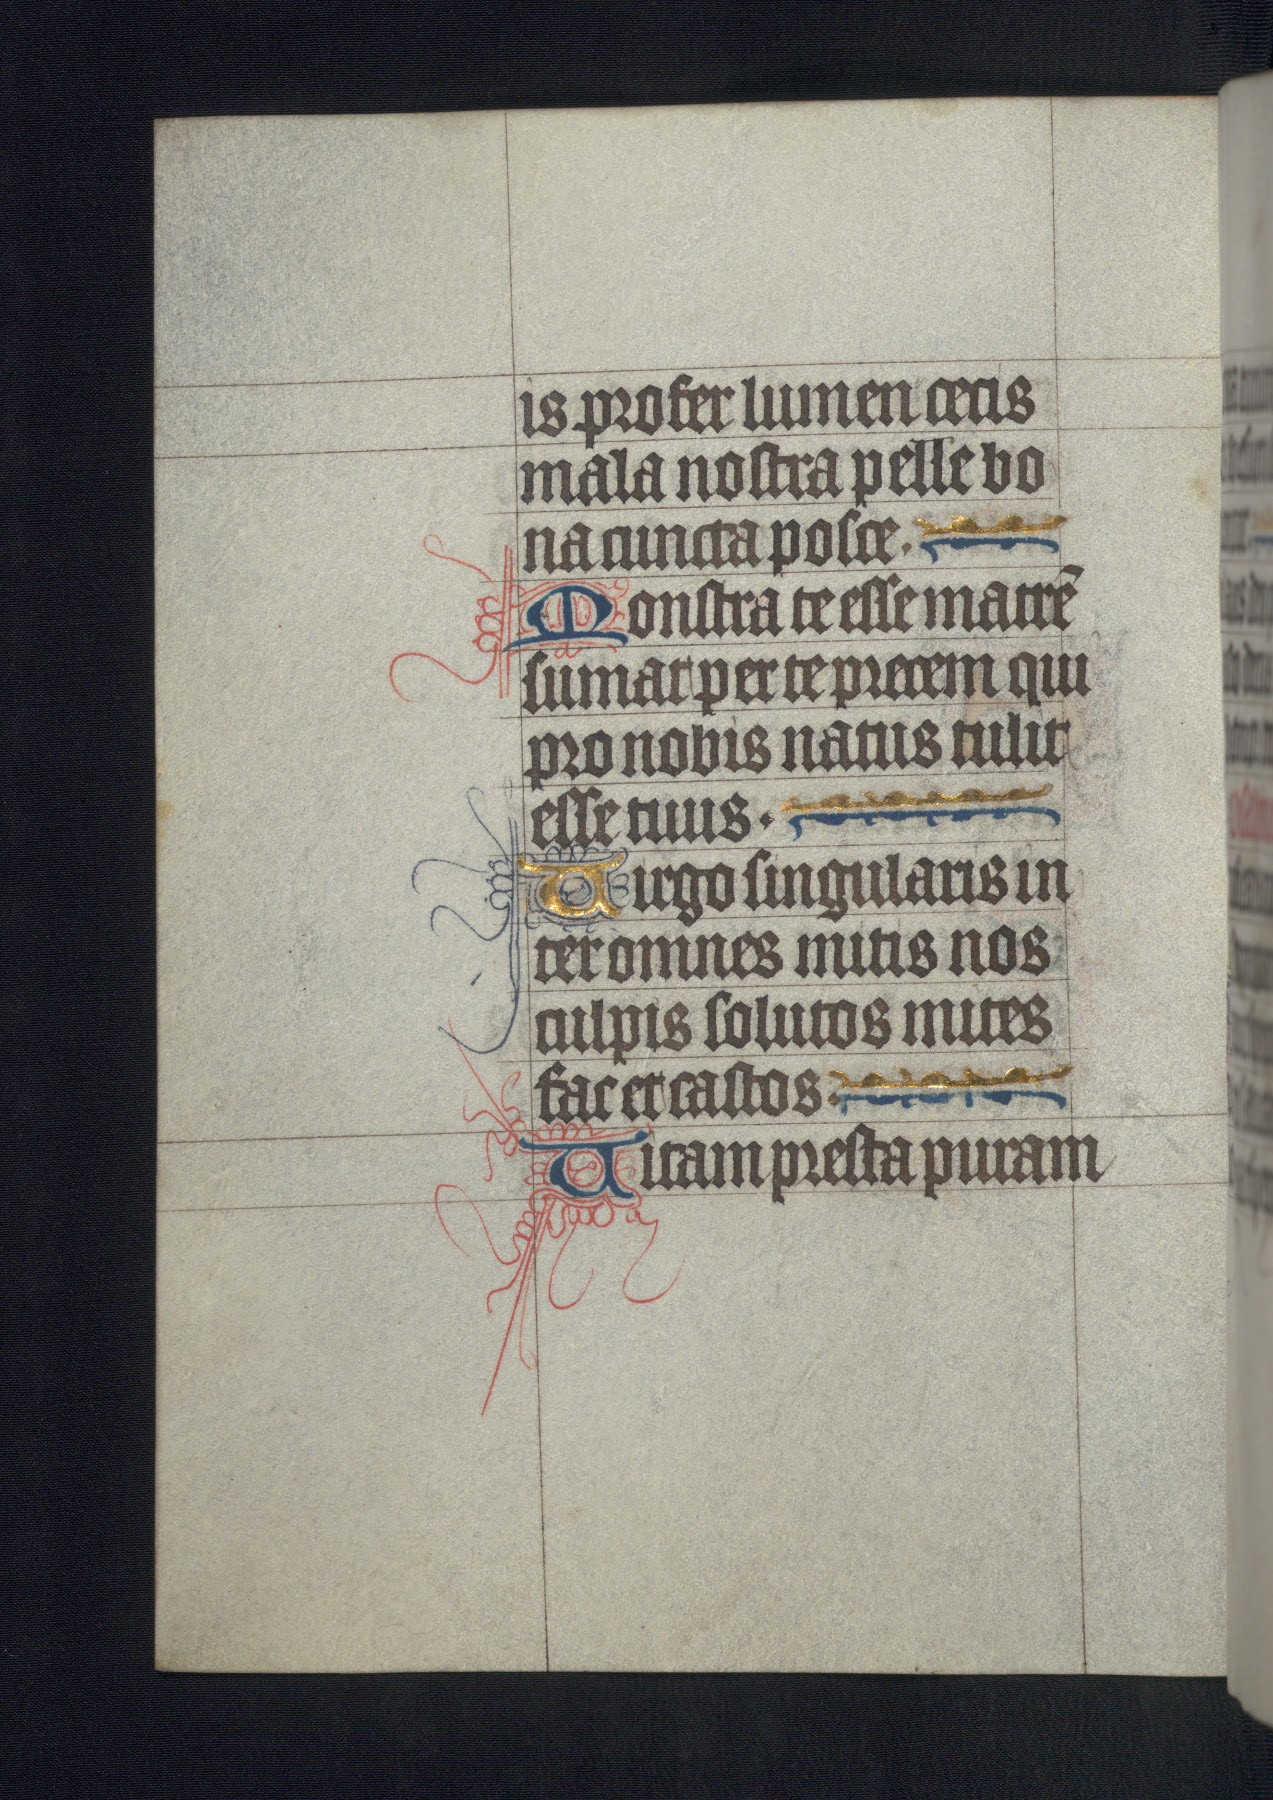 is profer lumen cecis
mala nostra pelle bo
na cuncta posce.
Monstra te esse matrē
sumat per te precem qui
pro nobis natus tulit
esse tuus.
Virgo singularis in
ter omnes mitis nos
culpis solutos mites
fac et castos.
Vitam presta puram